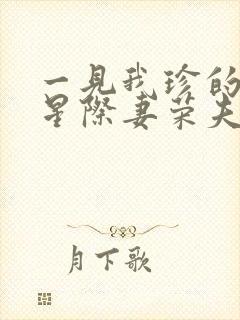 一見我珍的
星際妻荣夫
月下歌